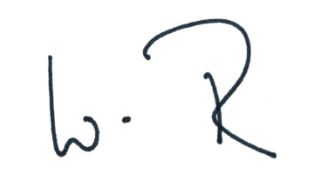 W. R